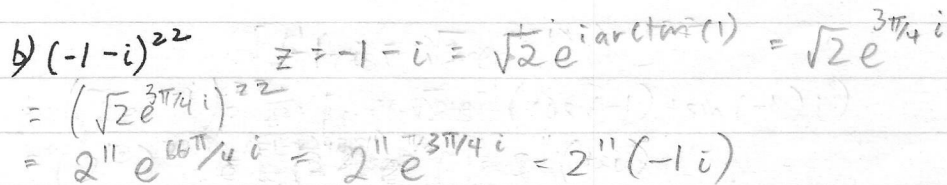 b) (-1-i)^22 z = -1-i = √2 e^(i arctan(1)) = √2 e^(3π/4 i)
= (√2 e^(3π/4 i))^22
= 2^11 e^(66π/4 i) = 2^11 e^(3π/4 i) = 2^11 (-1i)